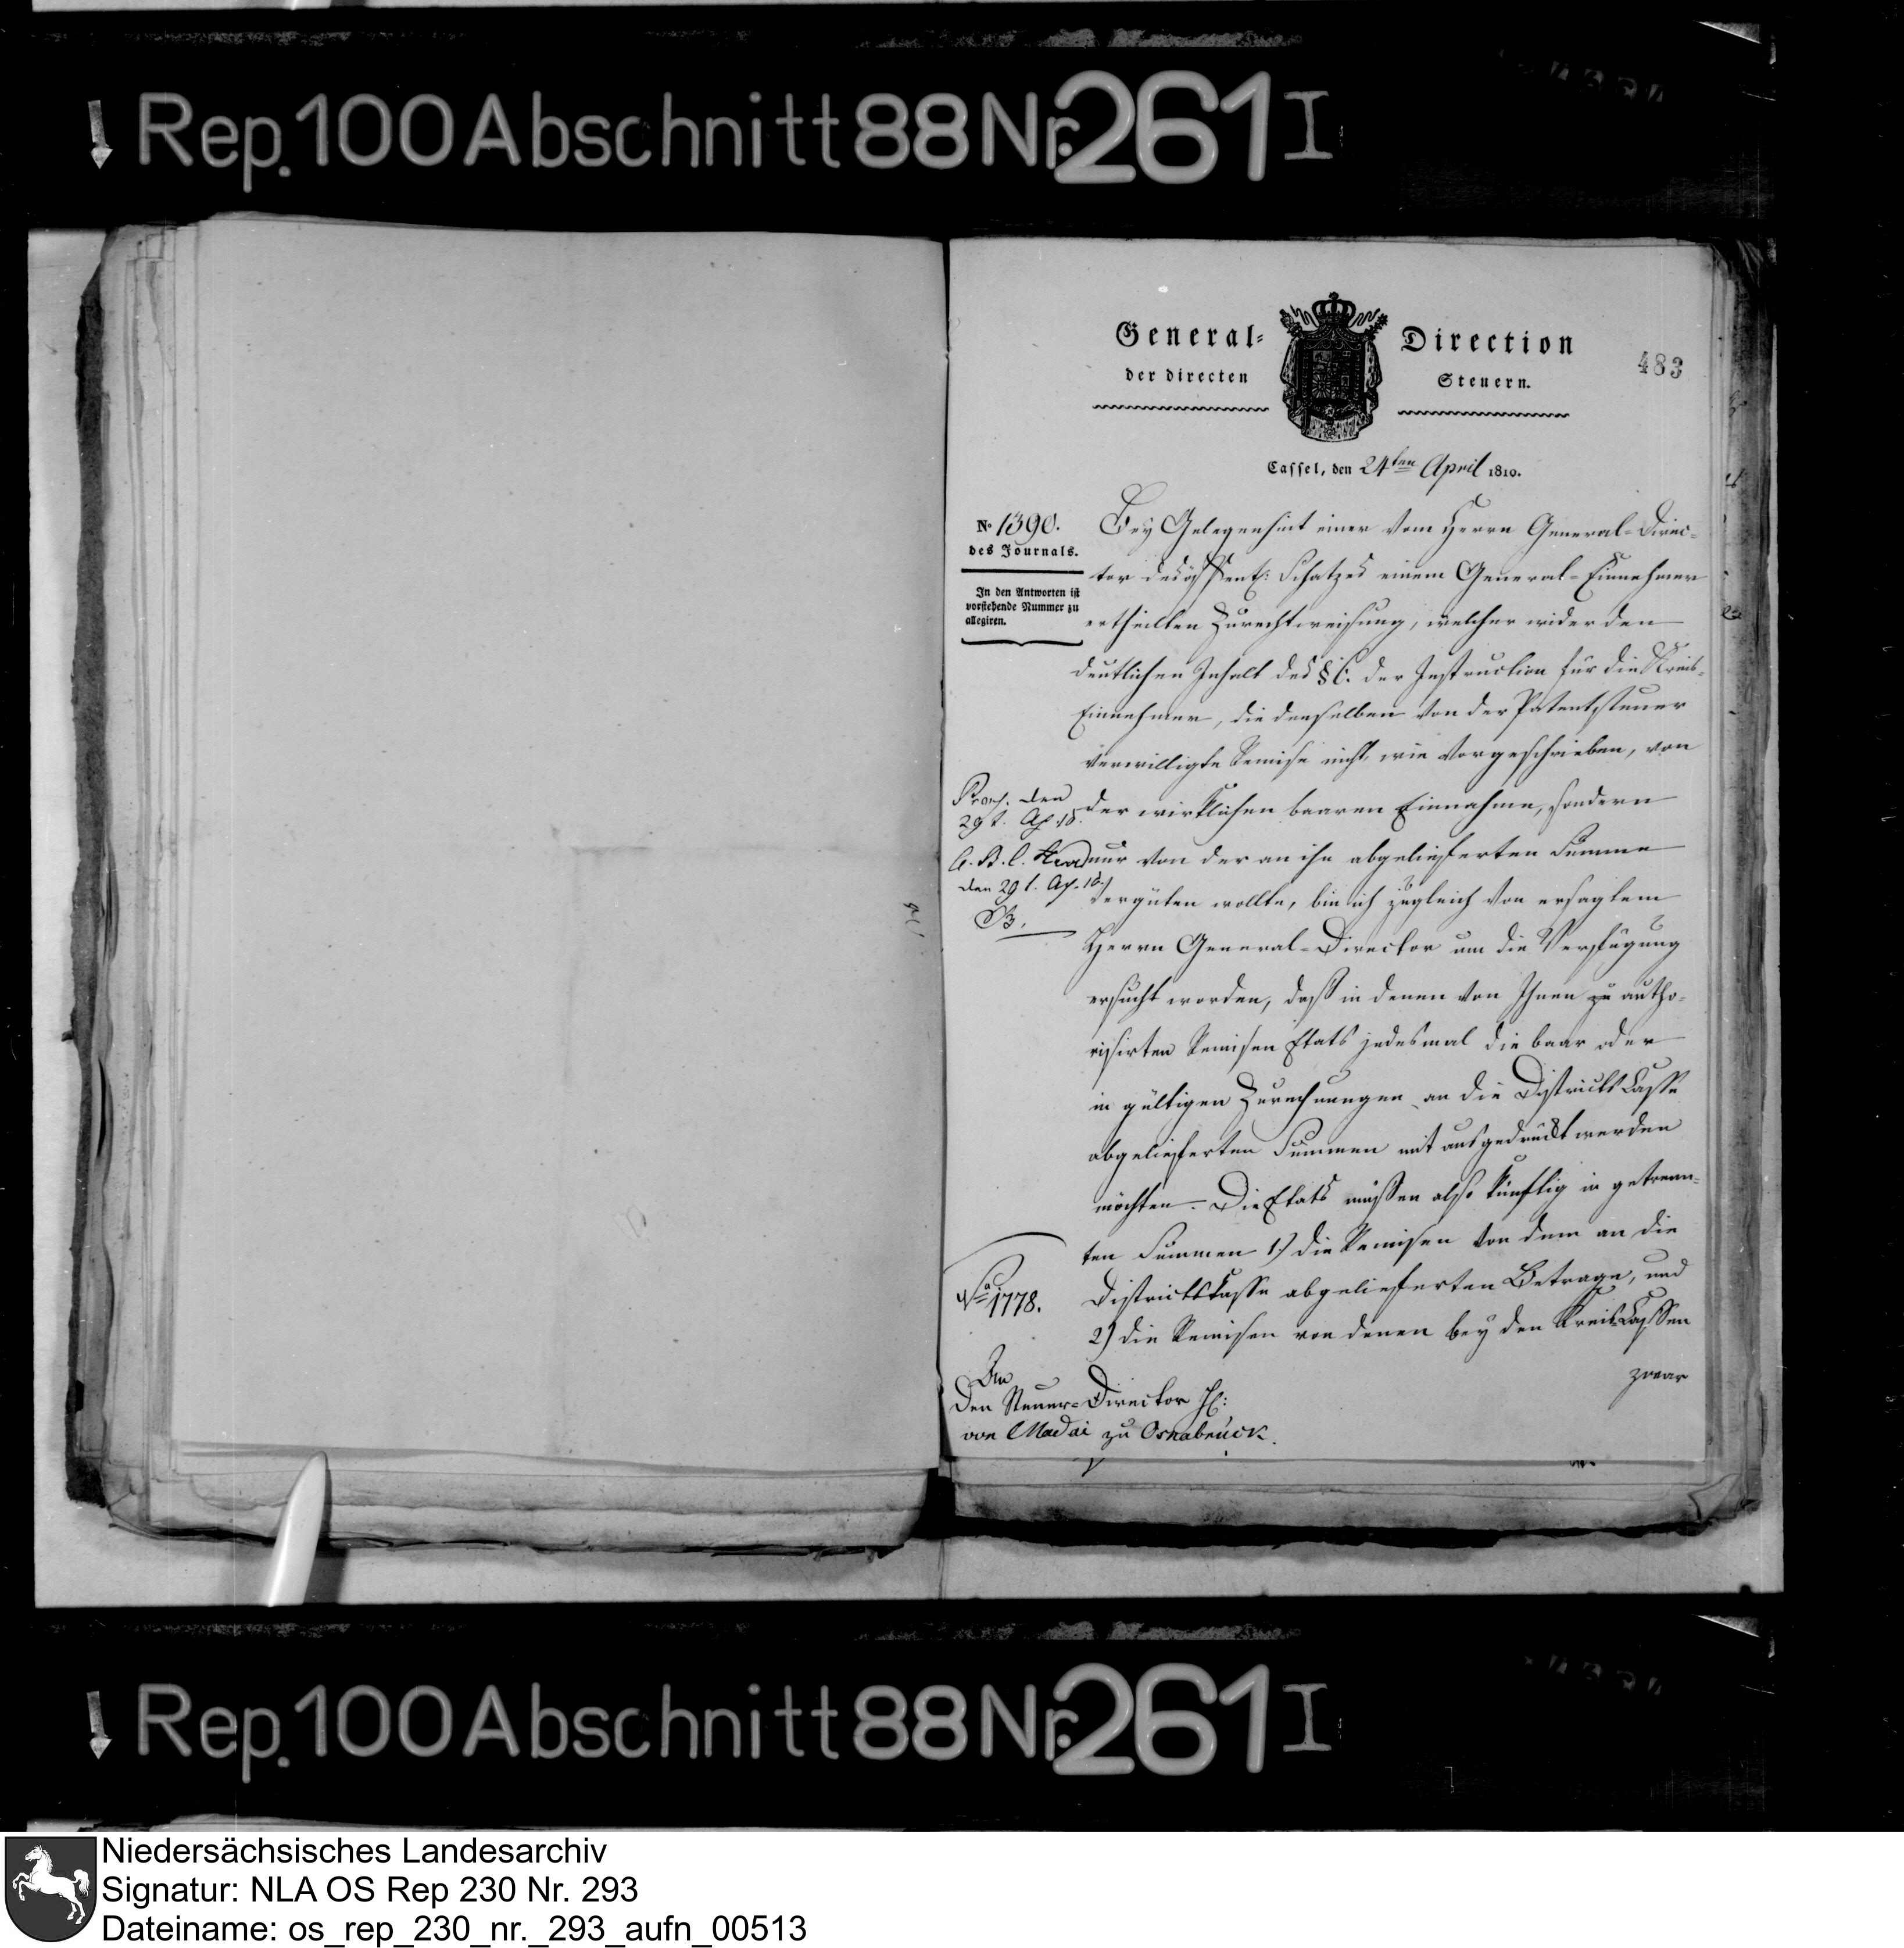 Rep. 100 Abschnitt 88 Nr. 261 I
General- Direction
der directen Steuern.
483
Cassel, den 24ten April 1810.
No 1390.
des Journals.
In den Antworten ist
vorstehende Nummer zu
allegiren.
Bey Gelegenheit einer vom Herrn General-Direc-
tor des öffentl: Schatzes einem General-Einnehmer
ertheilten Zurechtweisung, welcher wider den
deutlichen Inhalt des § 6. der Instruction für die Kreis-
Einnehmer, die denselben von der Patentsteuer
verwilligte Remise nicht, wie vorgeschrieben, von
der wirklichen baaren Einnahme, sondern
nur von der an ihn abgelieferten Summe
vergüten wollte, bin ich zugleich von ersagtem
Herrn General-Director um die Verfügung
ersucht worden, daß in denen von Ihnen zu autho-
risirten Remisen Etats jedesmal die baar oder
in gültigen Zurechnungen an die Districts Casse
abgelieferten Summen mit ausgedruckt werden
möchten. Die Etats müssen also künftig in getrenn-
ten Summen 1.) die Remisen von dem an die
Districtskasse abgelieferten Betrage, und
2) die Remisen von denen bey den Kreis-Cassen
zwar
Praes. den
29 t. Ap. 10.
den 29 t. Ap. 10.
B.
No 1778.
An
den Steuer-Director H:
von Madai zu Osnabrück.
Rep. 100 Abschnitt 88 Nr. 261 I
Niedersächsisches Landesarchiv
Signatur: NLA OS Rep 230 Nr. 293
Dateiname: os_rep_230_nr._293_aufn_00513